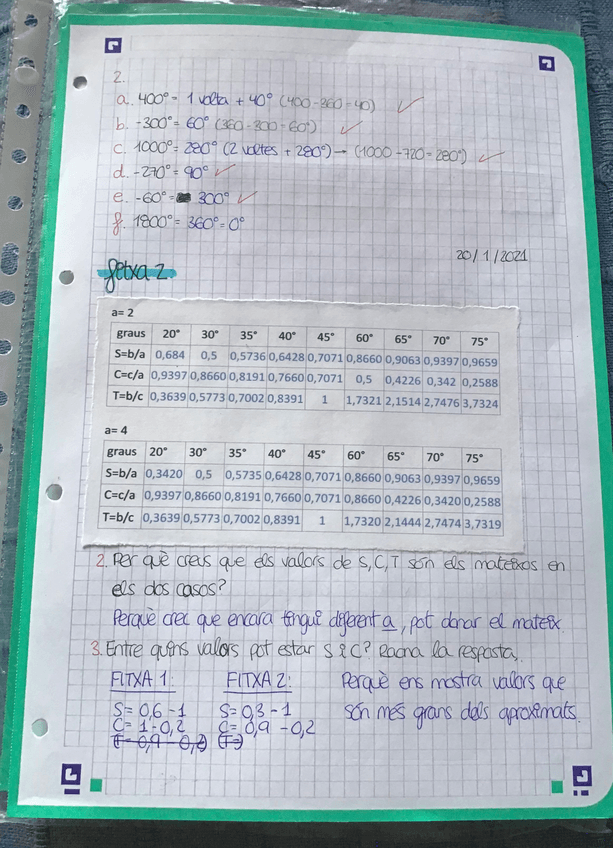 2.
a. 400° = 1 volta + 40° (400-360=40)
b. -300° = 60° (360-300=60°)
c. 1000° = 280° (2 voltes + 280°) → (1000-720=280°)
d. -270° = 90°
e. -60° = 300°
f. 1800° = 360° = 0°
20/1/2021
fitxa 2
a= 2
graus 20° 30° 35° 40° 45° 60° 65° 70° 75°
S=b/a 0,684 0,5 0,5736 0,6428 0,7071 0,8660 0,9063 0,9397 0,9659
C=c/a 0,9397 0,8660 0,8191 0,7660 0,7071 0,5 0,4226 0,342 0,2588
T=b/c 0,3639 0,5773 0,7002 0,8391 1 1,7321 2,1514 2,7476 3,7324
a= 4
graus 20° 30° 35° 40° 45° 60° 65° 70° 75°
S=b/a 0,3420 0,5 0,5735 0,6428 0,7071 0,8660 0,9063 0,9397 0,9659
C=c/a 0,9397 0,8660 0,8191 0,7660 0,7071 0,8660 0,4226 0,3420 0,2588
T=b/c 0,3639 0,5773 0,7002 0,8391 1 1,7320 2,1444 2,7474 3,7319
2. Per què creus que els valors de S, C, T són els mateixos en
els dos casos?
Perquè crec que encara tingui diferent a, pot donar el mateix.
3. Entre quins valors pot estar S i C? Raona la resposta.
FITXA 1: FITXA 2: Perquè ens mostra valors que
S= 0,6-1 S= 0,3-1 són més grans dels aproximats.
C= 1-0,2 C= 0,9-0,2
T= 0,9-0,2 (T=)